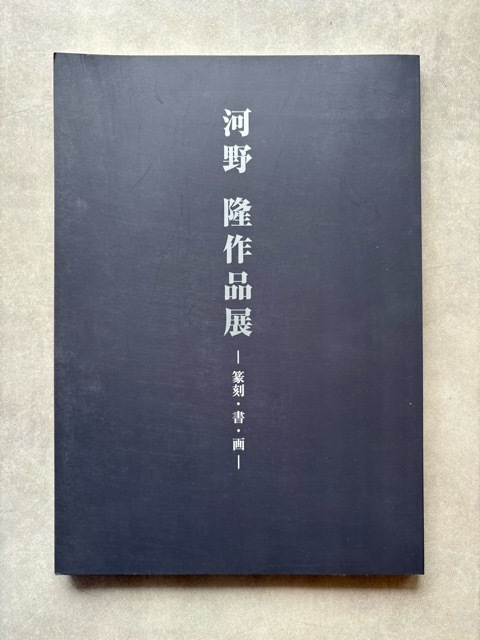 河野 隆作品展
―篆刻・書・画―